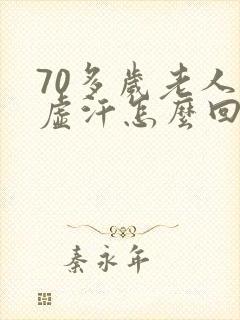 70多歲老人
虛汗怎麼回
秦永年